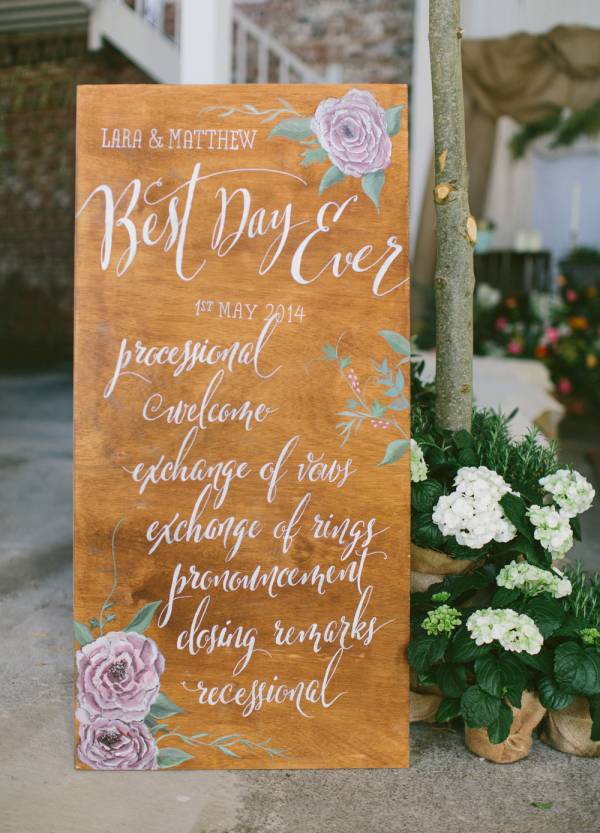 LARA & MATTHEW
Best Day Ever
1ST MAY 2014
processional
welcome
exchange of vows
exchange of rings
pronouncement
closing remarks
recessional